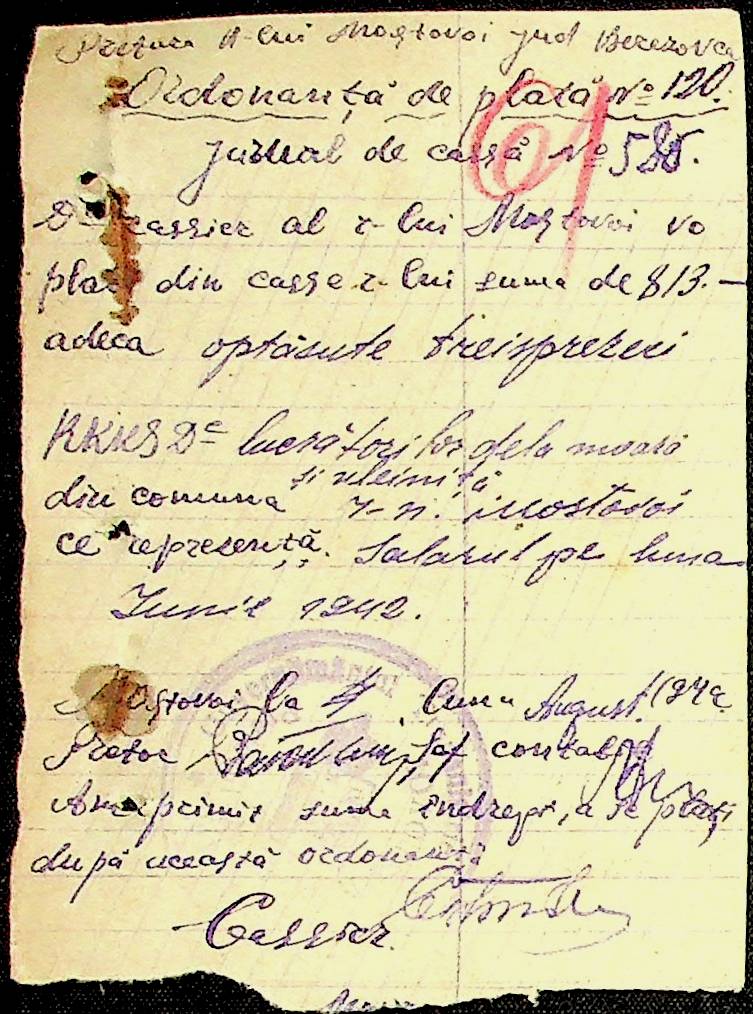 Pretura R-lui Mostovoi jud Berezovca
Ordonanță de plată № 120.
61
Jurnal de cassă № 585.
Dl cassier al r-lui Mostovoi va
plăti din casse r-lui suma de 813.—
adeca optăsute treisprezeci
RKKS De lucrătorilor dela moară
și uleiniță
din comuna r-n. Mostovoi
ce represență. Salarul pe luna
Iunie 1942.
Mostovoi la 4 luna August. 1942.
Pretor Șef contabil
Am primit suma îndrept, a se plăti
după această ordonanță
Cassier.